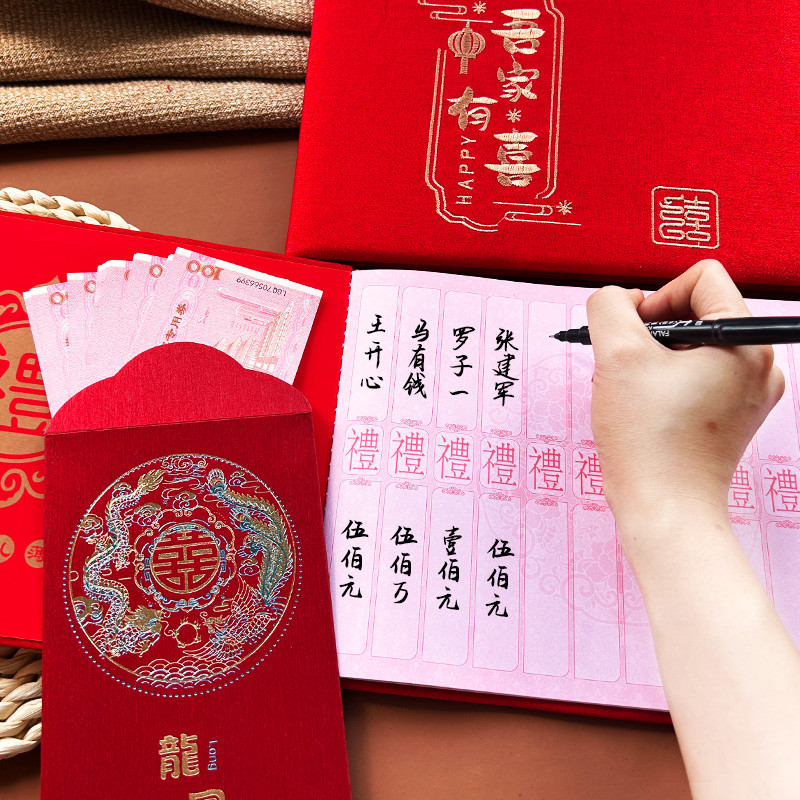 吾家
有喜
HAPPY
囍
100
LGQ70566399
王开心
马有钱
罗子一
张建军
禮
禮
禮
禮
禮
禮
禮
禮
伍佰元
伍佰万
壹佰元
伍佰元
囍
龍
Long